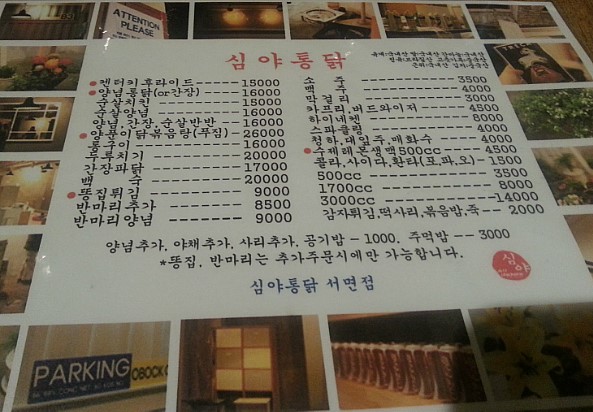 ATTENTION
PLEASE
심야통닭
● 켄터키후라이드 15000
● 양념통닭(or간장) 16000
순살치킨 15000
순살양념 16000
양념,간장,순살반반 16000
닭볶음탕(푸짐) 26000
16000
두루치기 20000
간장파닭 17000
백 숙 20000
● 똥집튀김 9000
반마리추가 8500
반마리양념 9000
소 주 3500
맥 주 4000
막걸리 3000
카프리,버드와이저 4500
하이네켄 8000
스파클링 4000
청하,대일주,매화수 4000
● 수제레몬생맥500cc 4500
콜라,사이다,환타(포,파,오) 1500
500cc 3500
1700cc 8000
3000cc 14000
감자튀김,떡사리,볶음밥,죽 2000
양념추가, 야채추가, 사리추가, 공기밥 - 1000. 주먹밥 -- 3000
*똥집, 반마리는 추가주문시에만 가능합니다.
심야
심야통닭 서면점
PARKING